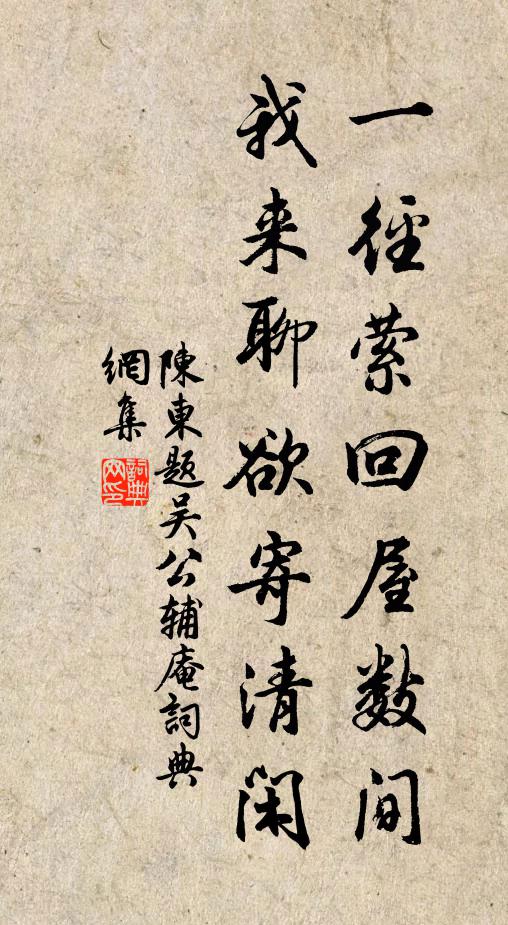 一徑縈回屋数间
我来聊欲寄清闲
陳東题吴公辅庵詞典
網集
詞典网印